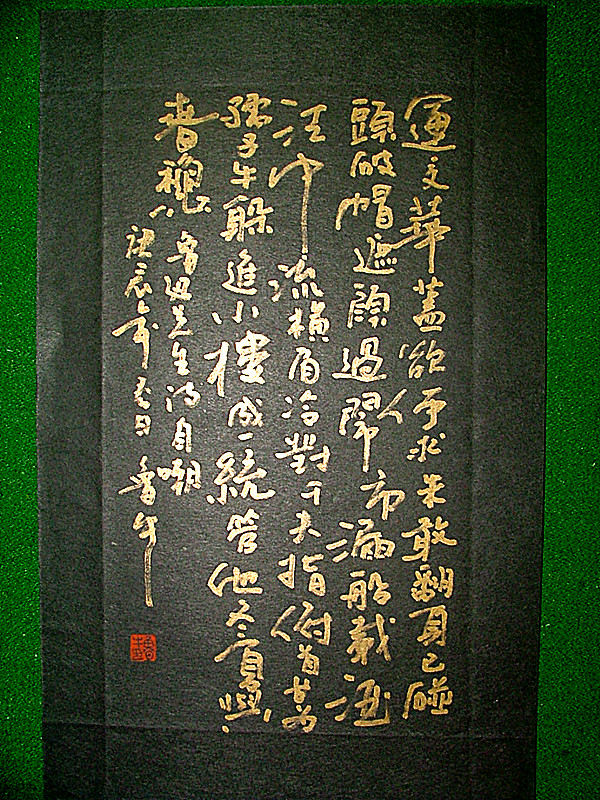 運交華蓋欲何求未敢翻身已碰
頭破帽遮顏過鬧市漏船載酒
泛中流橫眉冷對千夫指俯首甘為
孺子牛躲進小樓成一統管他冬夏與
春穐
魯迅先生詩自嘲
庚辰年 日 魯